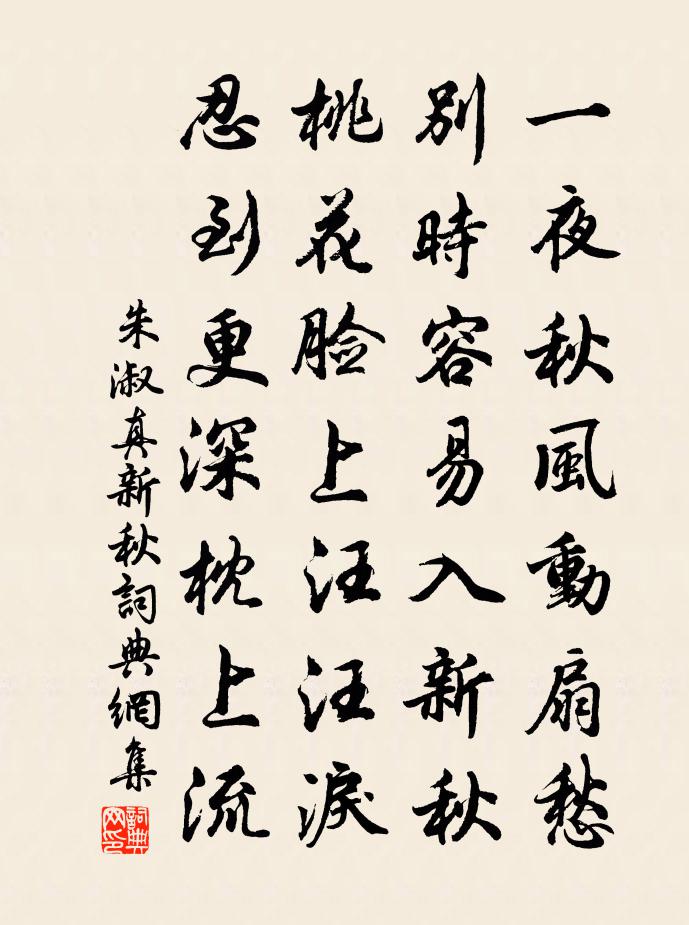 一夜秋風動扇愁
別時容易入新秋
桃花脸上汪汪淚
忍到更深枕上流
朱淑真新秋詞典網集
詞典網印